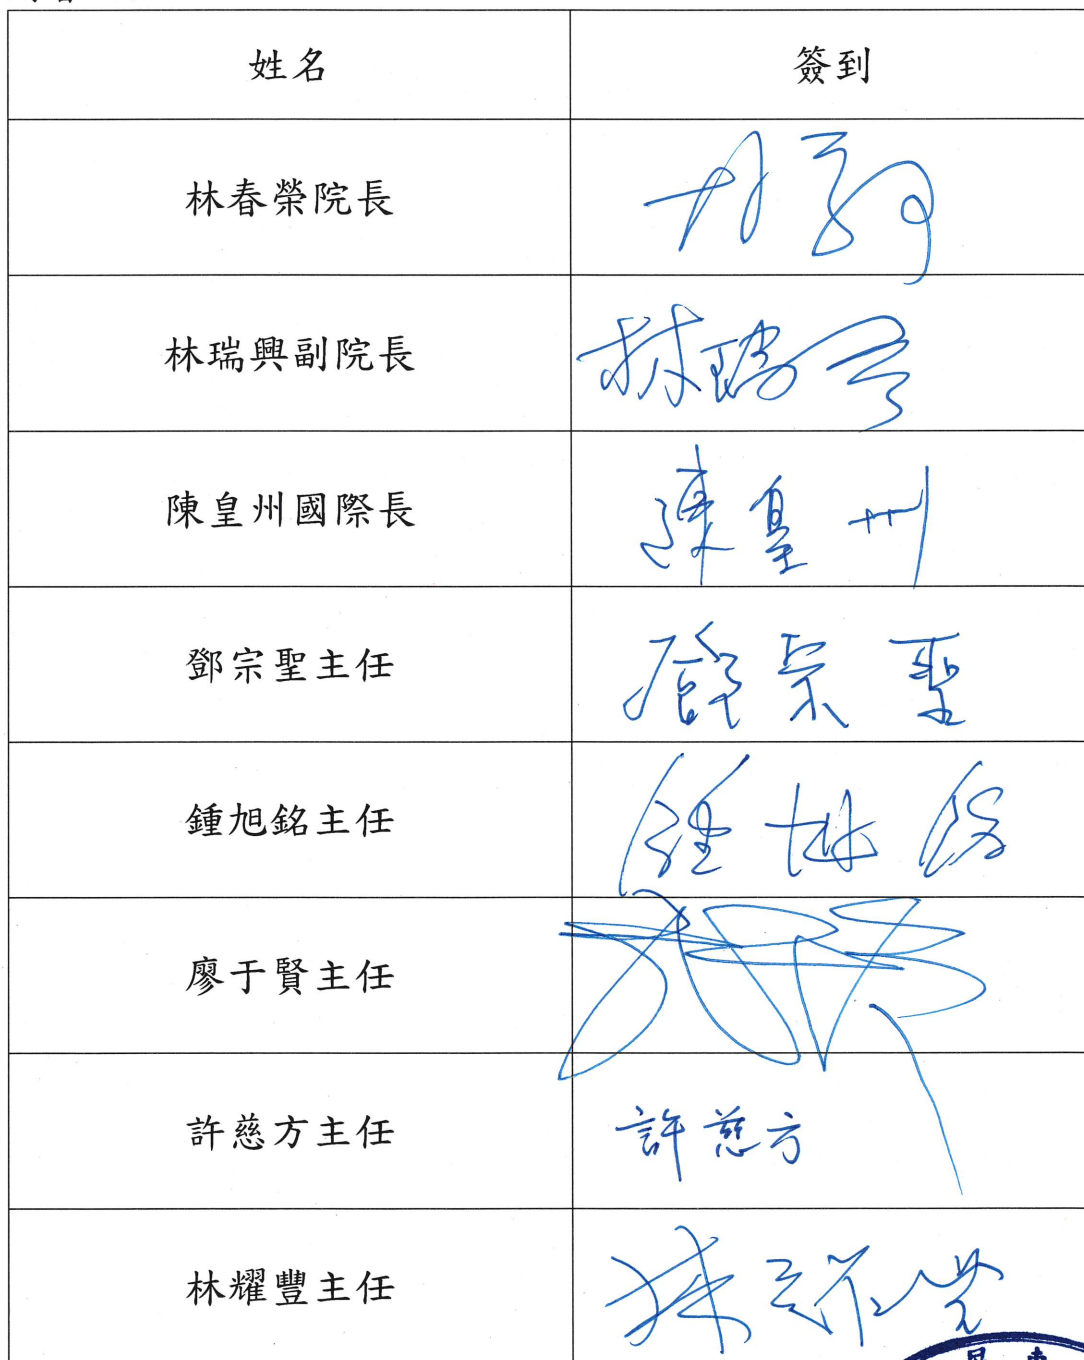 姓名 簽到
林春榮院長
林瑞興副院長 林瑞興
陳皇州國際長 陳皇州
鄧宗聖主任 鄧宗聖
鍾旭銘主任
廖于賢主任
許慈方主任 許慈方
林耀豐主任